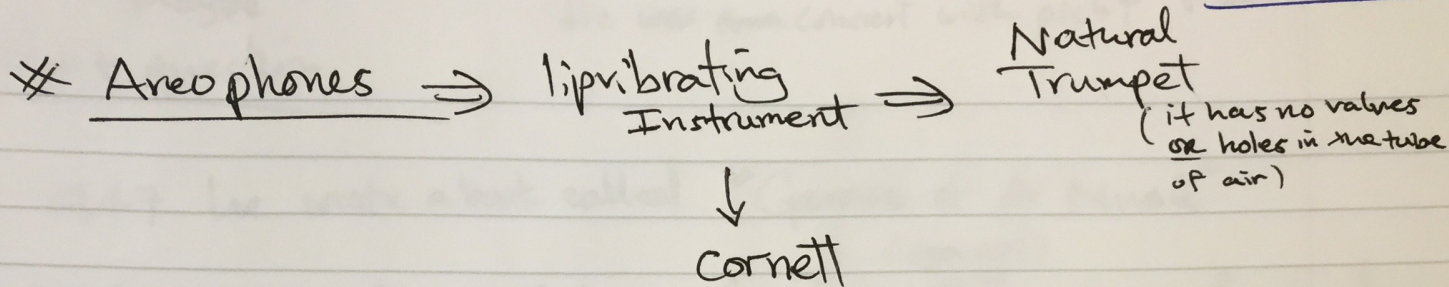 ※ Areophones ⇒ lipvibrating Instrument ⇒ Natural Trumpet
(it has no valves
or holes in the tube
of air)
↓
Cornett